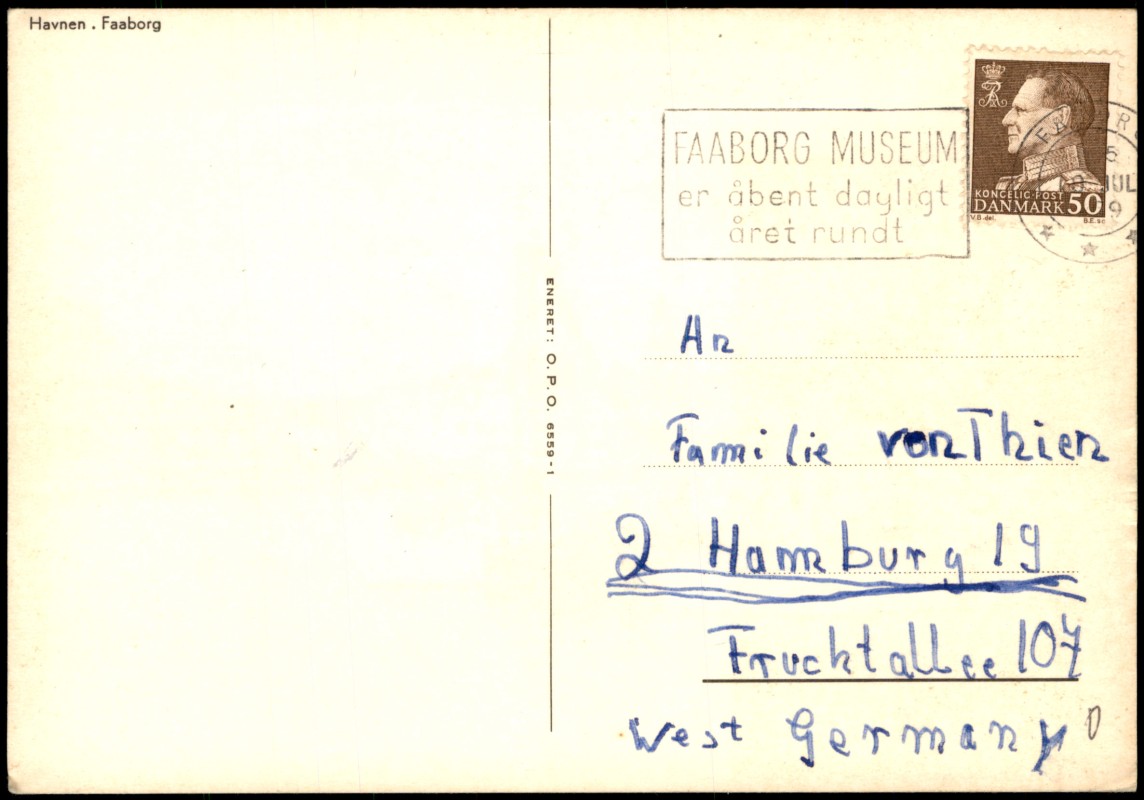 Havnen . Faaborg
FAABORG MUSEUM
er åbent dagligt
året rundt
KONGELIG·POST
DANMARK 50
V.B. del.
ENERET: O.P.O. 6559-1
An
Familie von Thien
2 Hamburg 19
Fruchtallee 107
West Germany